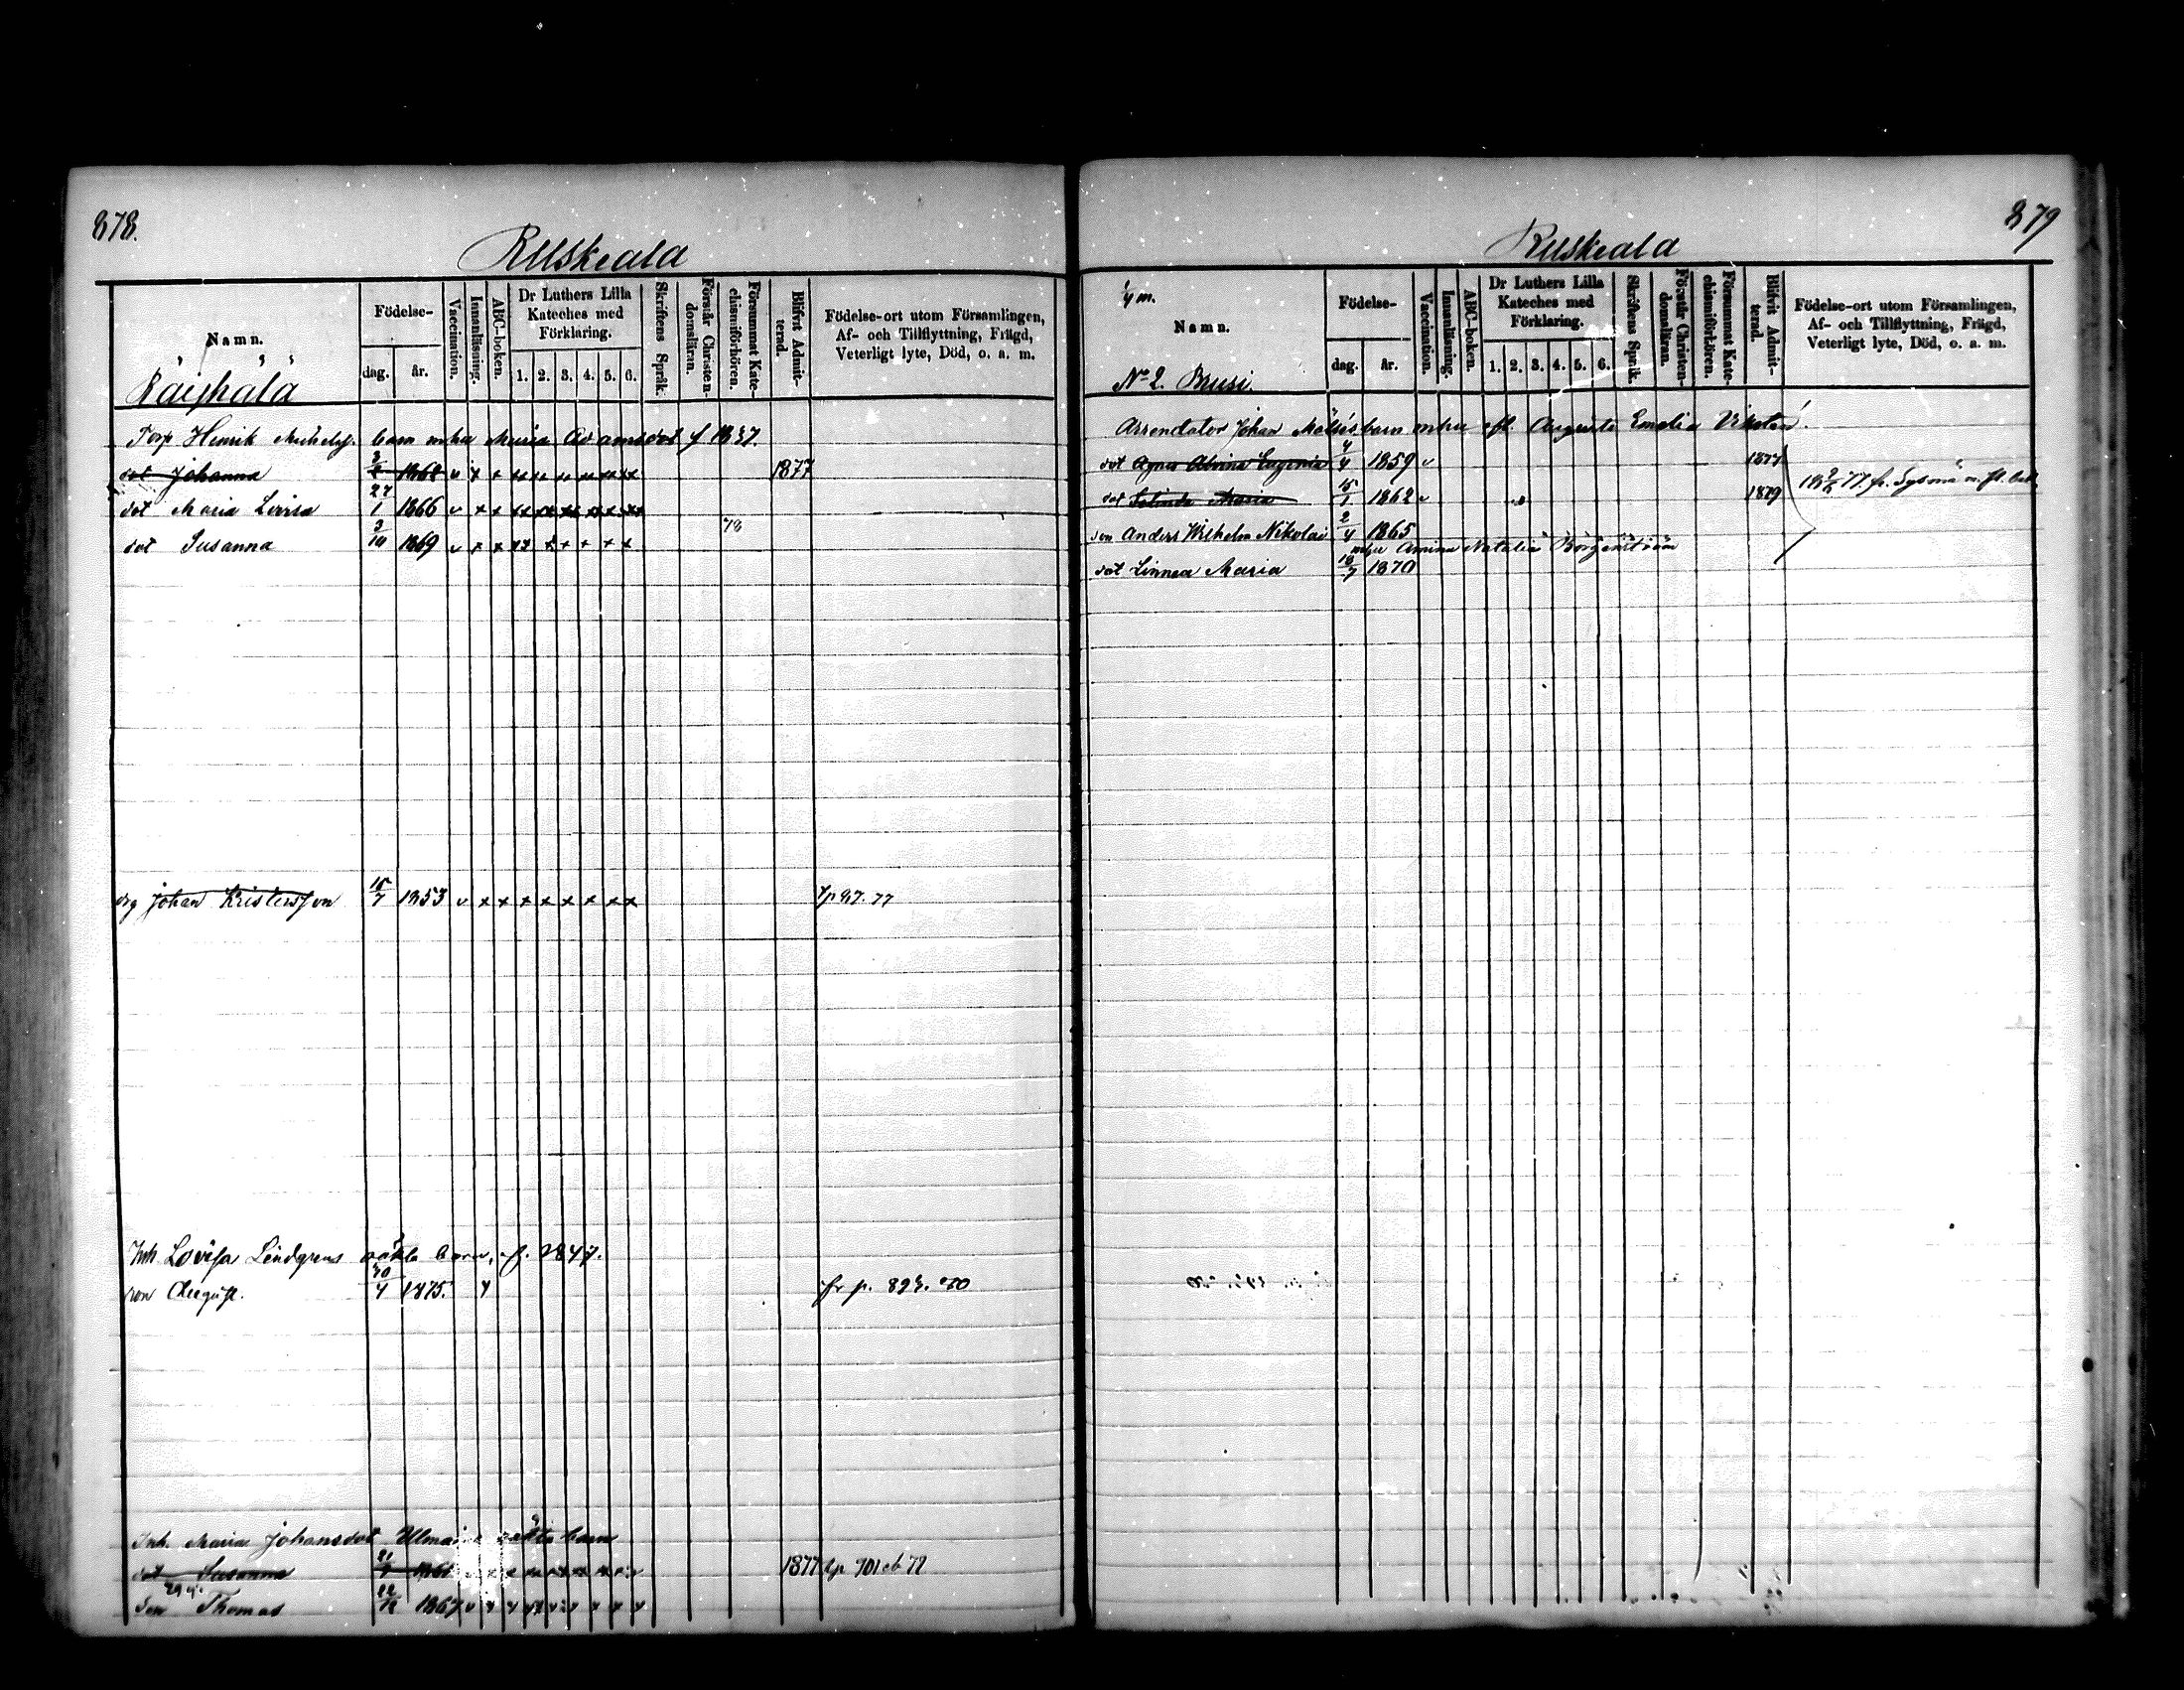 878.
Ruskeala
Namn.
Födelse-
dag.
år.
Vaccination.
Innanläsning.
ABC-boken.
Dr Luthers Lilla Kateches med Förklaring.
1. 2. 3. 4. 5. 6.
Skriftens Språk.
Förstår Christendomsläran.
Försummat Katechismiförhören.
Blifvit Admitterad.
Födelse-ort utom Församlingen, Af- och Tillflyttning, Frägd, Veterligt lyte, Död, o. a. m.
Torp Henrik barn mhu Maria Adamsdot f 1837.
dot Johanna 1862 v x x xx xx xx xx xx xx 1877
dot Maria Lovisa 27/1 1866 v x x xx xx xx xx xx xx
dot Susanna 3/10 1869 v x x xx x x x x x 78
drg Johan Kristersson 15/7 1853 v x x x x x x x x
Inh. Lovisa Lindgrens oäkta barn, f. 1847.
son August. 30/4 1875. fr p. 893. 80
Inh. Maria Johansdot oäkta barn
dot Susanna 21 1877 tp 701 ob 72
son Thomas 22/12 1867 v
879
Ruskeala
1/4 m.
Namn.
No 2. Brusi.
Födelse-
dag.
år.
Vaccination.
Innanläsning.
ABC-boken.
Dr Luthers Lilla Kateches med Förklaring.
1. 2. 3. 4. 5. 6.
Skriftens Språk.
Förstår Christendomsläran.
Försummat Katechismiförhören.
Blifvit Admitterad.
Födelse-ort utom Församlingen, Af- och Tillflyttning, Frägd, Veterligt lyte, Död, o. a. m.
Arrendator Johan barn mhu Augusta Emelia
dot Agnes Alvina Eugenia 4/4 1859 v 1877
dot Maria 15/1 1862 v 1879
son Anders Wilhelm Nikolai 2/4 1865
mhu Amina Natalia Borgenström
dot Linnea Maria 18/7 1870